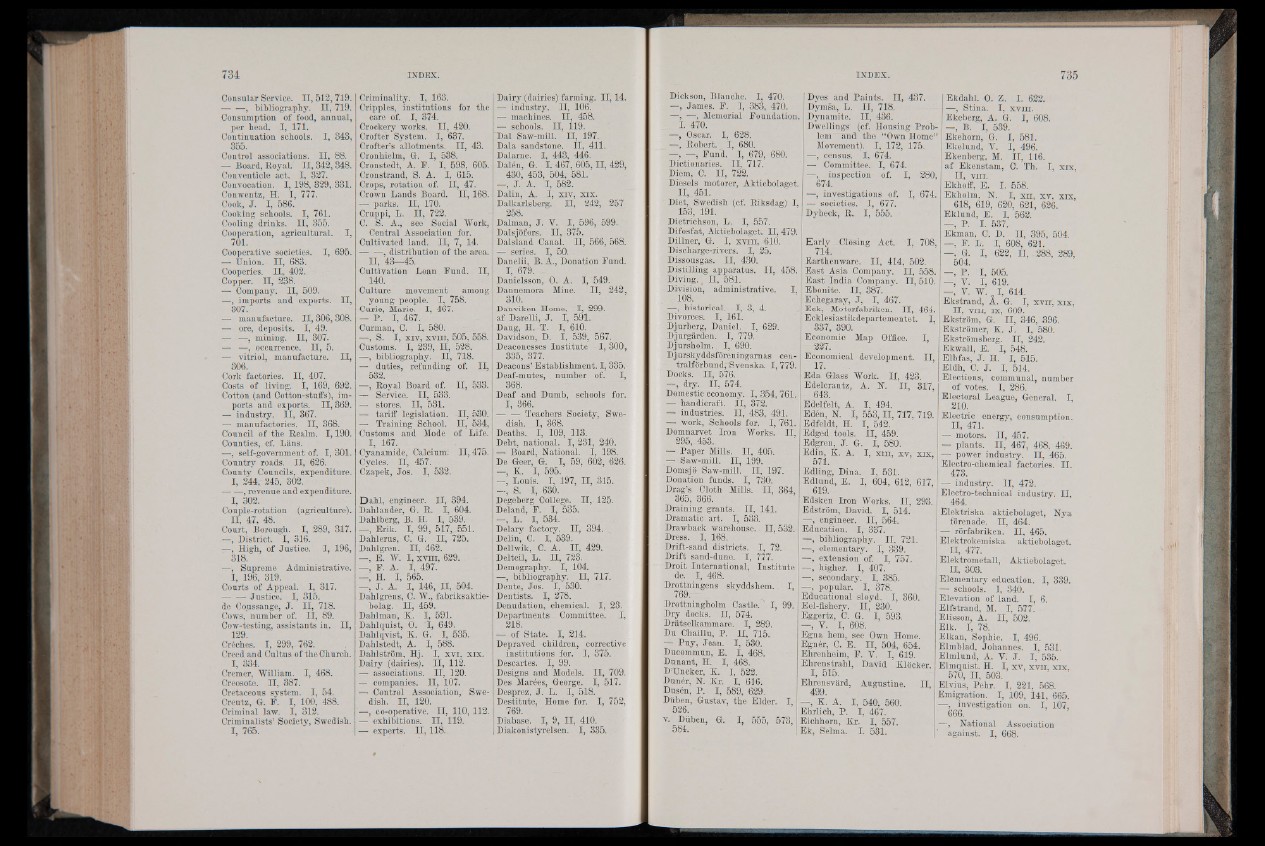 734
INDEX.
Consular Service. II, 512, 719.
— —, bibliography. II, 719.
Consumption of food, annual,
per head. I, 171.
Continuation schools. I, 343,
355.
Control associations. II, 88.
— Board, Royal. II, 342, 348.
Conventicle act. I, 327.
Convocation. I, 198, 329, 331.
Conwentz, H. I, 777.
Cook, J. I, 586.
Cooking schools. I, 761.
Cooling drinks. II, 355.
Cooperation, agricultural. I,
701.
Cooperative societies. I, 695.
— Union. II, 683.
Cooperies. II, 402.
Copper. II, 238.
— Company. II, 509.
—, imports and exports. II,
307.
— manufacture. II, 306, 308.
— ore, deposits. I, 49.
— —, mining. II, 307.
— —, occurrence. II, 5.
— vitriol, manufacture. II,
306.
Cork factories. II, 407.
Costs of living. I, 169, 692.
Cotton (and Cotton-stuffs), im-
ports and exports. II, 369.
— industry. II, 367.
— manufactories. II, 368.
Council of the Realm. I, 190.
Counties, cf. Läns.
—, self-government of. I, 301.
Country roads. II, 626.
County Councils, expenditure.
I, 244, 245, 302.
— —, revenue and expenditure.
I, 302.
Couple-rotation (agriculture).
II, 47, 48.
Court, Borough. I, 289, 317.
—, District. I, 316.
—, High, of Justice. I, 196,
318.
—, Supreme Administrative.
I, 196, 319.
Courts of Appeal. I, 317.
— — Justice. I, 315.
de Coussange, J. II, 718.
Cows, number of. II, 89.
Cow-testing, assistants in. II,
129.
Crèches. I, 299, 762.
Creed and Cultus of the Church.
I, 334.
Cremer, William. I, 468.
Creosote. II, 387.
Cretaceous system. I, 54.
Creutz, G. F. I, 100, 488.
Criminal law. I, 312.
Criminalists' Society, Swedish.
I, 765.
Criminality. I, 163.
Cripples, institutions for the
care of. I, 374.
Crockery works. II, 420.
Crofter System. I, 637.
Crofter's allotments. II, 43.
Cronhielm, G. I, 538.
Cronstedt, A. F. I, 598, 605.
Cronstrand, S. A. I, 615.
Crops, rotation of. II, 47.
Crown Lands Board. II, 168.
— parks. II, 170.
Cruppi, L. II, 722.
C. S. A., see Social Work,
Central Association for.
Cultivated land. II, 7, 14.
— —, distribution of the area.
II, 43—45.
Cultivation Loan Fund. II,
140.
Culture movement among
young people. I, 758.
Curie, Marie. I, 467.
— P. I, 467.
Curman, C. I, 580.
—, S. I, XIV, XVIII, 505, 558.
Customs. I, 239, II, 528.
—, bibliography. II, 718.
— duties, refunding of. II,
532.
—, Royal Board of. II, 533.
— Service. II, 533.
— stores. II, 531.
— tariff legislation. II, 530.
— Training School. II, 534.
Customs and Mode of Life.
I, 167.
Cyanamide, Calcium. II, 475.
Cycles. II, 457.
Czapek, Jos. I, 532.
Dahl, engineer. II, 394.
Dahlander, G. R. I, 604.
Dahlberg, B. H. I, 539.
—, Erik. I, 99, 517, 551.
Dahlerus, C. G. II, 725.
Dahlgren. II, 462.
—, E. W. I, XVIII, 629.
—, F. A. I, 497.
—, H. I, 565.
—, J. A. I, 146, II, 504.
Dahlgrens, C. W., fabriksaktie-
bolag. II, 459.
Dahlman, K. I, 591.
Dahlquist, O. I, 649.
Dahlqvist, K. G. I, 535.
Dahlstedt, A. I, 588.
Dahlström, Hj. I, XVI, XIX.
Dairy (dairies). II, 112.
— associations. II, 120.
— companies. II, 107.
— Control Association, Swe-
dish. II, 120.
—, co-operative. II, 110, 112.
— exhibitions. II, 119.
— experts. II, 118.
Dairy (dairies) farming. II, 14.
— industry. II, 106.
— machines. II, 458.
— schools. II, 119.
Dal Saw-mill. II, 197.
Dala sandstone. II, 411.
Dalarne. I, 443, 446.
Dalén, G. I, 467, 605, II, 429,
430, 453, 504, 581.
—, J. A. I, 582.
Dalin, A. I, XIV, XIX.
Dalkarlsberg. II, 242, 257
258.
Dalman, J. V. I, 596, 599.
Dalsjöfors. II, 375.
Dalsland Canal. II, 566, 568.
— series. I, 50.
Danelii, B. A., Donation Fund.
I, 679.
Danielsson, O. A. I, 549.
Dannemora Mine. II, 242,
310.
Danviken Home. I, 299.
af Darelli, J. I, 591.
Daug, H. T. I, 610.
Davidson, D. I, 539, 567.
Deaconesses Institute I, 300,
335, 377.
Deacons' Establishment. I, 335.
Deaf-mutes, number of. I,
368.
Deaf and Dumb, schools for.
I, 366.
— — Teachers Society, Swe-
dish. I, 368.
Deaths. I, 109, 113.
Debt, national. I, 231, 240.
— Board, National. I, 198.
De Geer, G. I, 59, 602, 626.
—, K. I, 595.
—, Louis. I, 197, II, 315.
—, S. I, 630.
Degeberg College. II, 125.
Deland, F. I, 535.
—, L. I, 534.
Delary factory. II, 394.
Delin, C. I, 539.
Dellwik, C. A. II, 429.
Delteil, L. II, 723.
Demography. I, 104.
—, bibliography. II, 717.
Dente, Jos. I, 530.
Dentists. I, 278.
Denudation, chemical. I, 23.
Departments Committee. I,
218.
— of State. I, 214.
Depraved children, corrective
institutions for. I, 375.
Descartes. I, 99.
Designs and Models. II, 709.
Des Marées, George. I, 517.
Desprez, J. L. I, 518.
Destitute, Home for. I, 752,
769.
Diabase. I, 9, II, 410.
Diakonistyrelsen. I, 335.
INDEX.
735
Dickson, Blanche. I, 470.
—, James. F. I, 383, 470.
—, —, Memorial Foundation.
I, 470.
—, Oscar. I, 628.
—, Robert. I, 680.
—, —, Fund. I, 679, 680.
Dictionaries. II, 717.
Diem, C. II, 722.
Diesels motorer, Aktiebolaget.
II, 451.
Diet, Swedish (cf. Riksdag) I,
153, 191.
Dietrichson, L. I, 557.
Difesfat, Aktiebolaget. II, 479.
Dillner, G. I, XVIII, 610.
Discharge-rivers. I, 25.
Dissousgas. II, 430.
Distilling apparatus. II, 458.
Diving. II, 581.
Division, administrative. I,
108.
—, historical. I, 3, 4.
Divorces. I, 161.
Djurberg, Daniel. I, 629.
Djurgården. I, 779.
Djursholm. I, 690.
Djurskyddsföreningarnas cen-
tralförbund, Svenska. I, 779.
Docks. II, 576.
—, dry. II, 574.
Domestic economy. I, 354, 761.
— handicraft. II, 372.
— industries. II, 483, 491.
— work, Schools for. I, 761.
Domnarvet Iron Works. II,
295, 453.
— Paper Mills. II, 405.
— Saw-mill. II, 199.
Domsjö Saw-mill. II, 197.
Donation funds. I, 730.
Drag's Cloth Mills. II, 364,
365, 366.
Draining grants. II, 141.
Dramatic art. I, 533.
Drawback warehouse. II, 532.
Dress. I, 168.
Drift-sand districts. I, 72.
Drift sand-dune. I, 777.
Droit International, Institute
de. I, 468.
Drottningens skyddshem. I,
769.
Drottningholm Castle. I, 99.
Dry docks. II, 574.
Drätselkammare. I, 289.
Du Chaillu, P. II, 715.
— Puy, Jean. I, 530.
Ducommun, E. I, 468.
Dunant, H. I, 468.
D'Uncker, K. I, 522.
Dunér, N. Kr. I, 616.
Dusén, P. I, 589, 629.
Düben, Gustav, the Elder. I,
526.
v. Düben, G. I, 555, 573,
584.
Dyes and Paints. II, 437.
Dyméa, L. II, 718.
Dynamite. II, 436.
Dwellings (cf. Housing Prob-
lem and the "Own Home"
Movement). I, 172, 175.
—, census. I, 674.
— Committee. I, 674.
—, inspection of. I, 280,
674.
—, investigations of. I, 674.
— societies. I, 677.
Dybeck, R. I, 555.
Early Closing Act. I, 708,
714.
Earthenware. II, 414, 502.
East Asia Company. II, 558.
East India Company. II, 510.
Ebonite. II, 387.
Echegaray, J. I, 467.
Eck, Motorfabriken. II, 464.
Ecklesiastikdepartementet. I,
337, 390.
Economic Map Office. I,
227.
Economical development. II,
17.
Eda Glass Work. II, 423.
Edelcrantz, A. N. II, 317,
643.
Edelfelt, A. I, 494.
Edén, N. I, 553, II, 717, 719.
Edfeldt, H. I, 542.
Edged tools. II, 459.
Edgren, J. G. I, 580.
Edin, K. A. I, XIII, XV, XIX,
571.
Edling, Dina. I, 531.
Edlund, E. I, 604, 612, 617,
619.
Edsken Iron Works. II, 293.
Edström, David. I, 514.
—, engineer. II, 564.
Education. I, 337.
—, bibliography. II, 721.
—, elementary. I, 339.
—, extension of. I, 757.
—, higher. I, 407.
—, secondary. I, 385.
—, popular. I, 378.
Educational sloyd. I, 360.
Eel-fishery. II, 230.
Eggertz, C. G. I, 593.
—, V. I, 608.
Egna hem, see Own Home.
Egnér, C. E. II, 504, 654.
Ehrenheim, P. V. I, 619.
Ehrenstrahl, David Klöcker.
I, 515.
Ehrensvärd, Augustine. II,
499.
—, K. A. I, 540, 560.
Ehrlich, P. I, 467.
Eichhorn, Kr. I, 557.
Ek, Selma. I. 531.
Ekdahl. O. Z. I. 622.
—, Stina. I, XVIII.
Ekeberg, A. G. I, 608.
—, B. I, 539.
Ekehorn, G. I, 581.
Ekelund, V. I, 496.
Ekenberg, M. II, 116.
af Ekenstam, C. Th. I, XIX,
II, VIII.
Ekhoff, E. I. 558.
Ekholm. N. I, XII, XV, XIX,
618, 619, 620, 621, 626.
Eklund, E. I, 562.
—, P. I, 537.
Ekman, C. D. II, 395, 504.
—, F. L. I, 608, 621.
—, G. I, 622, II, 288, 289,
504.
—, P. I, 505.
—, V. I, 619.
—, V. W. I, 614.
Ekstrand, Å. G. I, XVII, XIX,
II, VIII, IX, 609.
Ekström, G. II, 346, 396.
Ekströmer, K. J. I, 580.
Ekströmsberg. II, 242.
Ekwall, E. I, 548.
Elbfas, J. H. I, 515.
Eldh, C. J. I, 514.
Elections, communal, number
of votes. I, 286.
Electoral League, General. I,
210.
Electric energy, consumption.
II, 471.
— motors. II, 457.
— plants. II, 467, 468, 469.
— power industry. II, 465.
Electro-chemical factories. II.
473.
— industry. II, 472.
Electro-technical industry. II,
464.
Elektriska aktiebolaget, Nya
förenade. II, 464.
— rörfabriken. II, 465.
Elektrokemiska aktiebolaget.
II, 477.
Elektrometall, Aktiebolaget.
II, 303.
Elementary education, I, 339.
— schools. I, 340.
Elevation of land. I, 6.
Elfstrand, M. I, 577.
Eliesson, A. II, 502.
Elk. I, 78.
Elkan, Sophie. I, 496.
Elmblad, Johannes. I, 531.
Elmlund, A. V. J. I, 535.
Elmquist. H. I, XV, XVII, XIX,
570, II, 503.
Elvius, Pehr. I, 221, 568.
Emigration. I, 109, 141, 665.
—, investigation on. I, 107,
666.
—, National Association
against. I, 668.